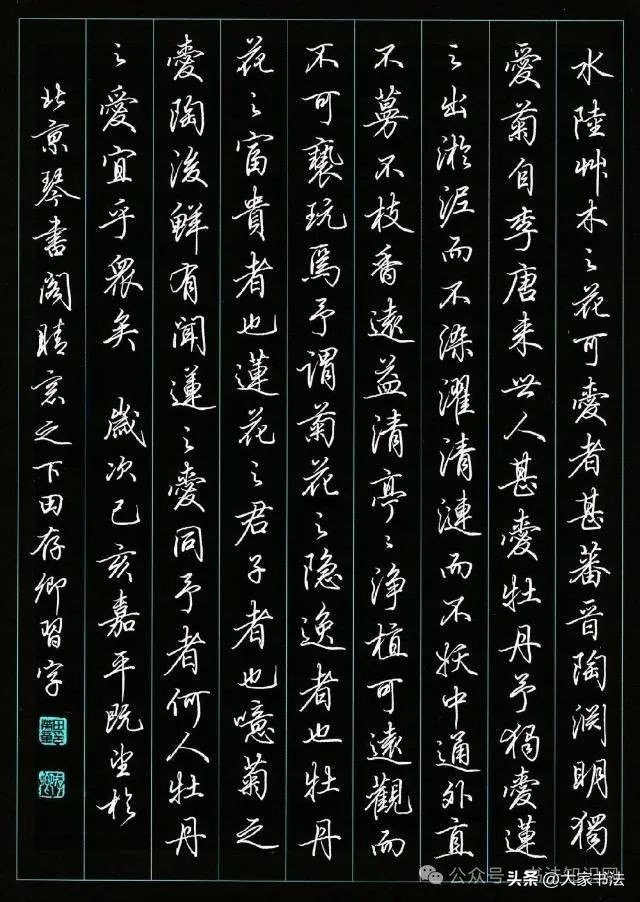 水陸艸木之花可愛者甚蕃晉陶渊明獨
愛菊自李唐来世人甚愛牡丹予独愛蓮
之出淤泥而不染濯清漣而不妖中通外直
不蔓不枝香遠益清亭〻淨植可遠觀而
不可褻玩焉予謂菊花之隐逸者也牡丹
花之富貴者也蓮花之君子者也噫菊之
愛陶後鮮有聞蓮之愛同予者何人牡丹
之愛宜乎衆矣 歲次己亥嘉平既望於
北京琴書阁晴窓之下田存卿習字
公众号·书法知识网
头条@大家书法